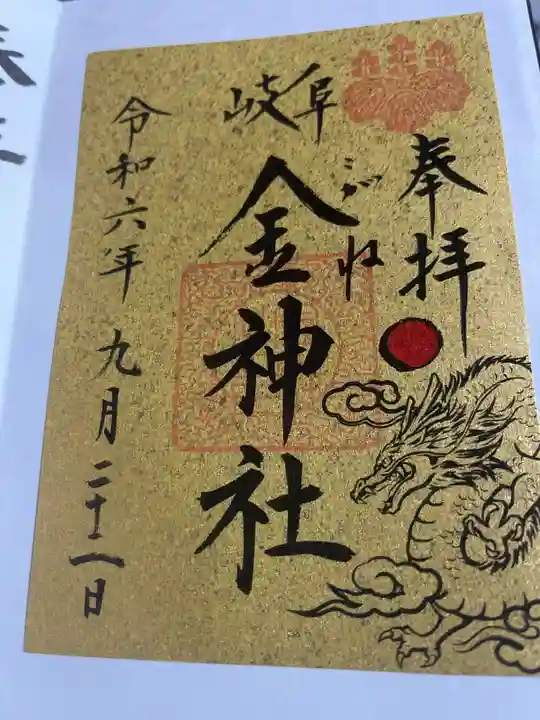 奉拝
岐阜
こがね
金神社
令和六年九月二十一日